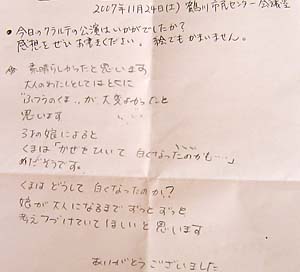 2007年11月24日(土) 鶴川市民センター 会議室
● 今日のクラルテの公演はいかがでしたか?
感想をぜひお書きください。絵でもかまいません。
素晴らしかったと思います
大人のわたしとしてはとくに
"ふつうのくま"が大変よかったと
思います
3才の娘によると
くまは「かぜをひいて 白くなったのかも…」
めだそうです。
くまは どうして 白くなったのか?
娘が大人になるまで ずっと ずっと
考えつづけていて ほしいと 思います
ありがとう ございました